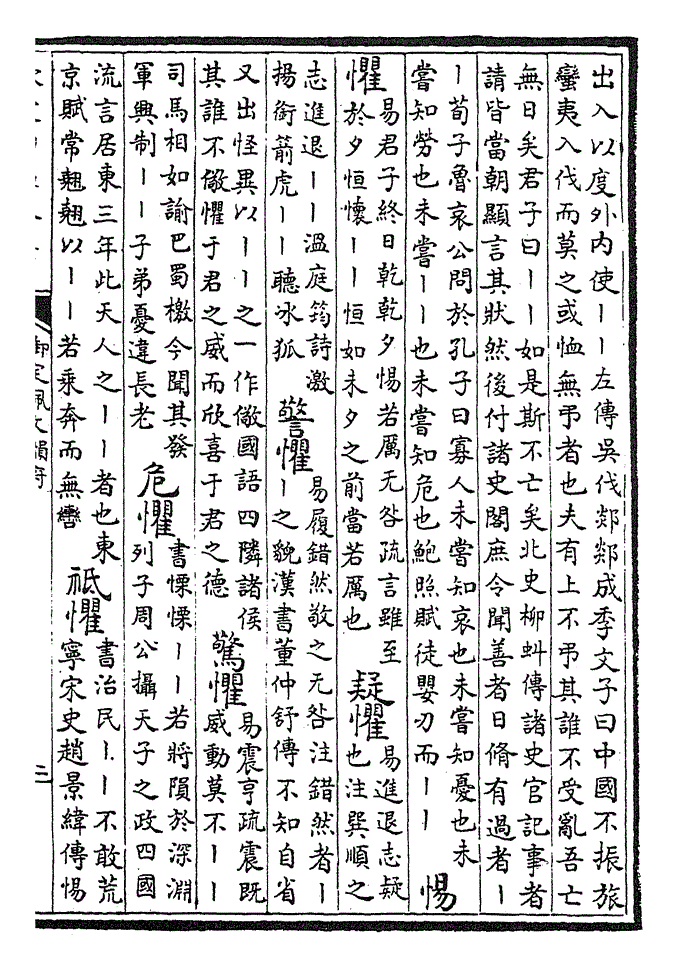 出入以度外内使｜｜左傳吳伐郯郯成季文子曰中國不振旅
蠻夷入伐而莫之或恤無弔者也夫有上不弔其誰不受亂吾亡
無日矣君子曰｜｜如是斯不亡矣北史柳虯傳諸史官記事者
請皆當朝顯言其狀然後付諸史閣庶令聞善者日脩有過者｜
｜荀子魯哀公問於孔子曰寡人未嘗知哀也未嘗知憂也未
嘗知勞也未嘗｜｜也未嘗知危也鮑照賦徒嬰刃而｜｜
惕
懼
易君子終日乾乾夕惕若厲无咎疏言雖至
於夕恒懷｜｜恒如未夕之前當若厲也
疑懼
易進退志疑
也注巽順之
志進退｜｜溫庭筠詩激
揚銜箭虎｜｜聽冰狐
警懼
易履錯然敬之无咎注錯然者｜
｜之貌漢書董仲舒傳不知自省
又出怪異以｜｜之一作儆國語四隣諸侯
其誰不儆懼于君之威而欣喜于君之德
驚懼
易震亨疏震既
威動莫不｜｜
司馬相如諭巴蜀檄今聞其發
軍興制｜｜子弟憂違長老
危懼
書慄慄｜｜若將隕於深淵
列子周公攝天子之政四國
流言居東三年此天人之｜｜者也東
京賦常翹翹以｜｜若乘奔而無轡
祗懼
書治民｜｜不敢荒
寧宋史趙景緯傳惕
御定佩文韻府
二